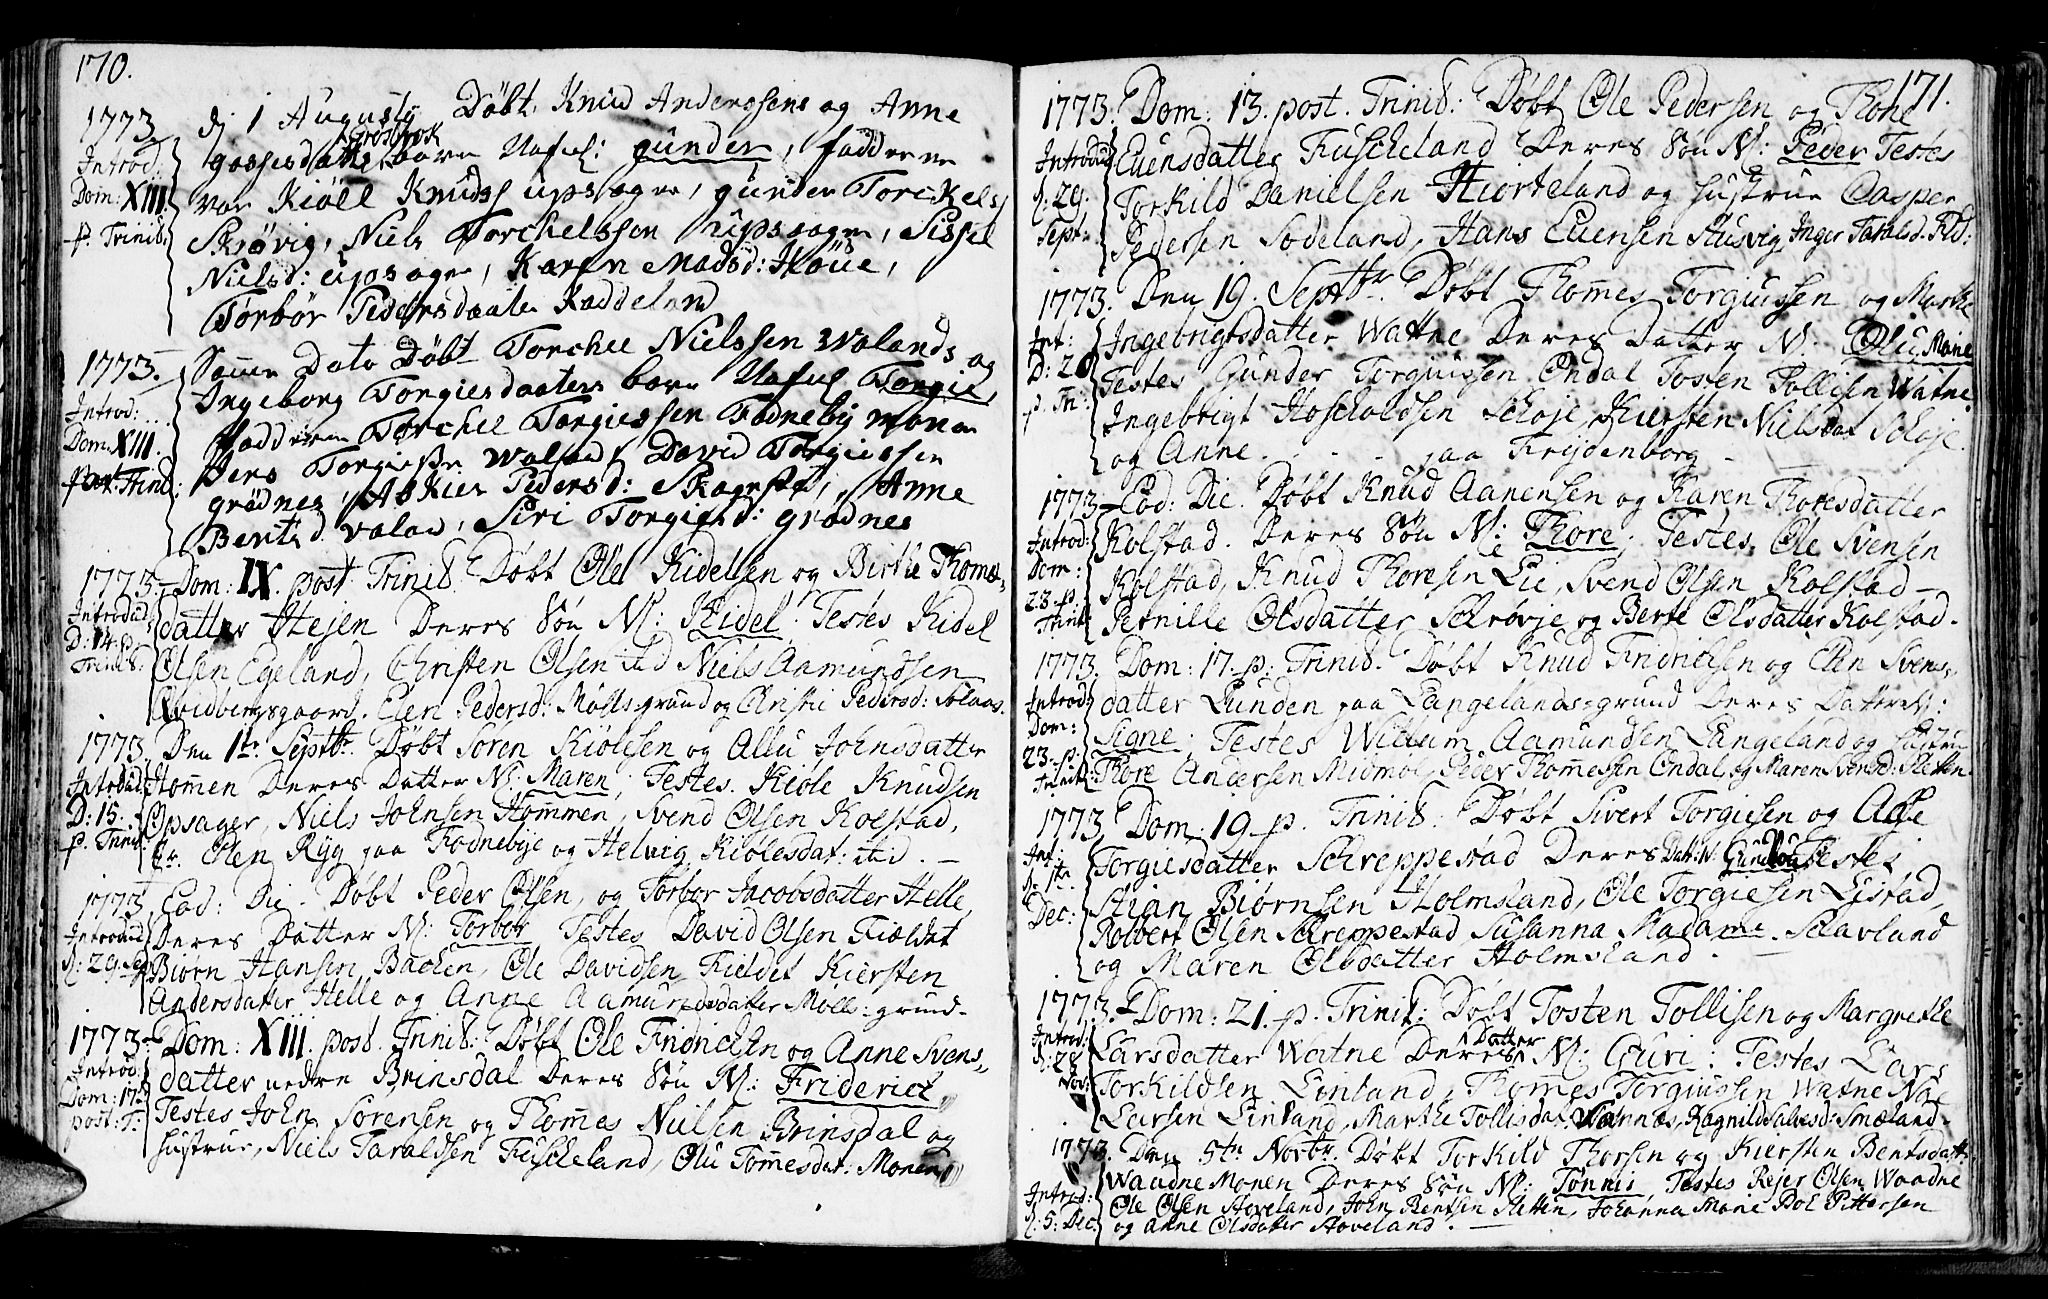 170.
1773 dj 1 Augusty Døbt. Knud Anderssens og Anne
Introd: Grosbrok
gossesdaatters barn Nafnl: gunder, fadderne
Dom: XIII var Kiöll Knuds upsager, gunder Torckels
p. Trinit. Skrøvig, Niels Torchelssen upsager, Sissel
Nielsd: upsager, Karen Madsd: Høüe,
Torbör Pedersdaater Kaddeland
1773. Samme Dato Døbt Torchel Nielssen Walands og
Introd: Ingeborg Torgiesdaaters barn Nafnl Torgie,
Dom: XIII. fadderne Torchel Torgiessen Fodneby monen
post. Trinit: Pers Torgiesen Waland, David Torgiessen
grødnes, Askier Pedersd: Skagestad, Anne
Bentsd valand, Siri Torgiesd: grødnes
1773. Dom: IX. post Trinit. Døbt Ole Kidelsen og Birthe Thomæ-
Introduc: datter Hejen Deres Søn N: Kidel. Testes Kidel
D: 14. p. Olsen Egeland, Christen Olsen ibid Niels Aamundsen
Trinit: Qvidbergsgaard. Elen Pedersd: Møllsgrund og Christi Pedersd: Solaas.
1773. Den 1te Septbr. Døbt Søren Kiölesen og Allu Johnsdatter
Introduc: Hommen Deres Datter N: Maren; Testes. Kiöle Knudsen
D: 15. Opsager, Niels Johnsen Hommen, Svend Olsen Kolstad,
p. Trinit: Hr. Elen Ryg paa Fodnebye og Helvig Kiölesdat: ibid. —
1773. Eod: Die. Døbt Peder Olsen, og Torbor Jacobsdatter Helle,
Introduc Deres Datter N: Torbor Testes David Olsen Fieldet
d: 29. Sep Biørn Hansen Backen, Ole Davidsen Fieldet Kiersten
Andersdatter Helle og Anne Aamundsdatter Molls-grund.
1773. Dom: XIII. post. Trinit: Døbt Ole Fridrichsen og Anne Svens-
Introd: datter nedre Brinsdal Deres Søn N: Friderich,
Dom: 17. Testes John Sørensen og Thomas Nielsen Brinsdal og
post: T: hustrue, Niels Taraldsen Fuscheland, Olu Tommesdat: Monen
171.
1773. Dom: 13. post. Trinit: Døbt Ole Pedersen og Thone
Introduc Euensdatter Fuscheland Deres Søn N: Peder Testes
d: 29. Torkild Danielsen Hiorteland og hustrue Casper
Sept: Pedersen Sodeland, Hans Euensen Stusvig Inger Taralsd. Fld:
1773. Den 19. Septbr. Døbt Thomes Torguisen og Marthe
Int: Ingebrigtsdatter Watne Deres Datter N. Olu Marie
D: 20 Testes Gunder Torguissen Ondal Tosten Tollisen Watne
p. Tri: Ingebrigt Hoscholdsen Schoje, Kiersten Nielsdat Schoje
og Anne . . - paa Frydenborg -
1773. Eod: Die. Døbt Knud Aanensen og Karen Thoresdatter
Introd: Kolstad. Deres Søn N: Thore; Testes. Ole Svensen
Dom: Kolstad, Knud Thoresen Lie, Svend Olsen Kolstad —
23. p. Trinit: Pernille Olsdatter Schrøvje og Berte Olsdatter Kolstad.
1773. Dom: 17. p: Trinit. Døbt Knud Fridricksen og Elen Svens-
Introd: datter Lunden paa Langelands-grund Deres Datter N:
Dom: Signe; Testes Willum Aamundsen Langeland og hustrue
23. p. Trinit: Thore Andersen Midmol Peder Thommessen Ondal og Maren Svensd: Sletten.
1773. Dom: 19. p. Trinit: Døbt Sivert Torgiesen og Asse
Int: Torgiesdatter Schreppestad Deres Dat: N. Testes
d. 1te Stian Biørnsen Holmsland, Ole Torgiesen Leistad,
Dec: Robbert Olsen Schreppestad Susanna Madame Schavland
og Maren Olsdatter Holmsland.
1773. Dom: 21. p. Trinit: Døbt Tosten Tollisen og Margrethe
Introd: Larsdatter Watne Deres Datter N: Guri: Testes Lars
d: 28 Nov: Torkildsen Linland, Thomes Torguissen Watne
Larsen Linland, Marthe Tollisdat. Warnæs, Ragnild Salvesd: Smæland.
1773. Den 5te Novbr. Døbt Torkild Thorsen og Kiersten Bentsdatt:
Waadne Monen Deres Søn N: Tønnis Testes Rejer Olsen Waadne
Introd: Ole Olsen Hoveland, John Bentsen Sletten, Johanna Marie Pol Pittersen
d: 5: Dec. og Anne Olsdatter Hoveland. —